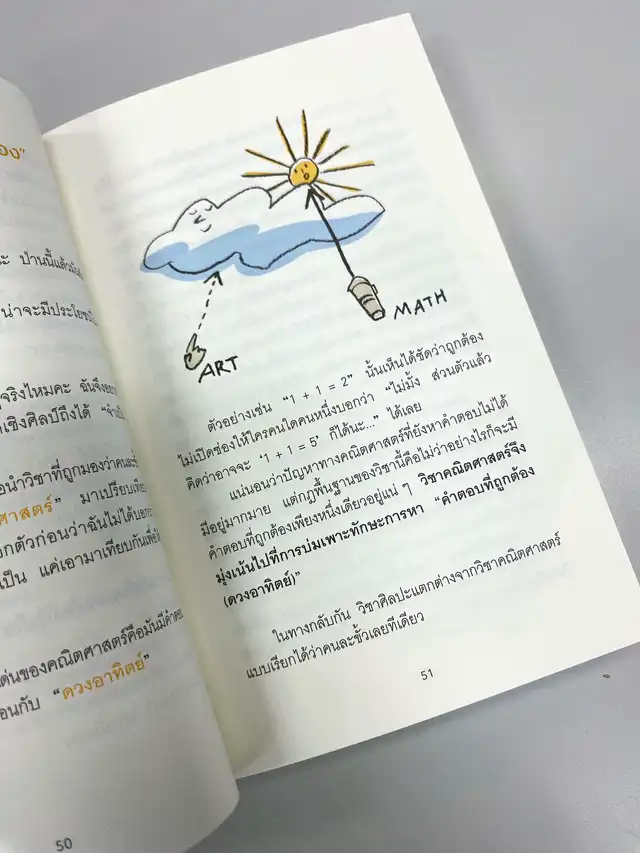 อง”
ะ ป่านนี้แล้วมัน
น่าจะมีประโยชน์
จริงไหมคะ ฉันจึงอยา
เชิงศิลป์ถึงได้ “จำเป็
อนำวิชาที่ถูกมองว่าคนละขั้
ศาสตร์” มาเปรียบเทีย
กตัวก่อนว่าฉันไม่ได้บอก
เป็น แค่เอามาเทียบกันเพื่อใ
ด่นของคณิตศาสตร์คือมันมีคำตอบ
อนกับ “ดวงอาทิตย์”
50
ART
MATH
ตัวอย่างเช่น “1 + 1 = 2” นั้นเห็นได้ชัดว่าถูกต้อง
ไม่เปิดช่องให้ใครคนใดคนหนึ่งบอกว่า “ไม่มั้ง ส่วนตัวแล้ว
คิดว่าอาจจะ ‘1 + 1 = 5’ ก็ได้นะ...” ได้เลย
แน่นอนว่าปัญหาทางคณิตศาสตร์ที่ยังหาคำตอบไม่ได้
มีอยู่มากมาย แต่กฎพื้นฐานของวิชานี้คือไม่ว่าอย่างไรก็จะมี
คำตอบที่ถูกต้องเพียงหนึ่งเดียวอยู่แน่ ๆ วิชาคณิตศาสตร์จึง
มุ่งเน้นไปที่การบ่มเพาะทักษะการหา “คำตอบที่ถูกต้อง
(ดวงอาทิตย์)”
ในทางกลับกัน วิชาศิลปะแตกต่างจากวิชาคณิตศาสตร์
แบบเรียกได้ว่าคนละขั้วเลยทีเดียว
51